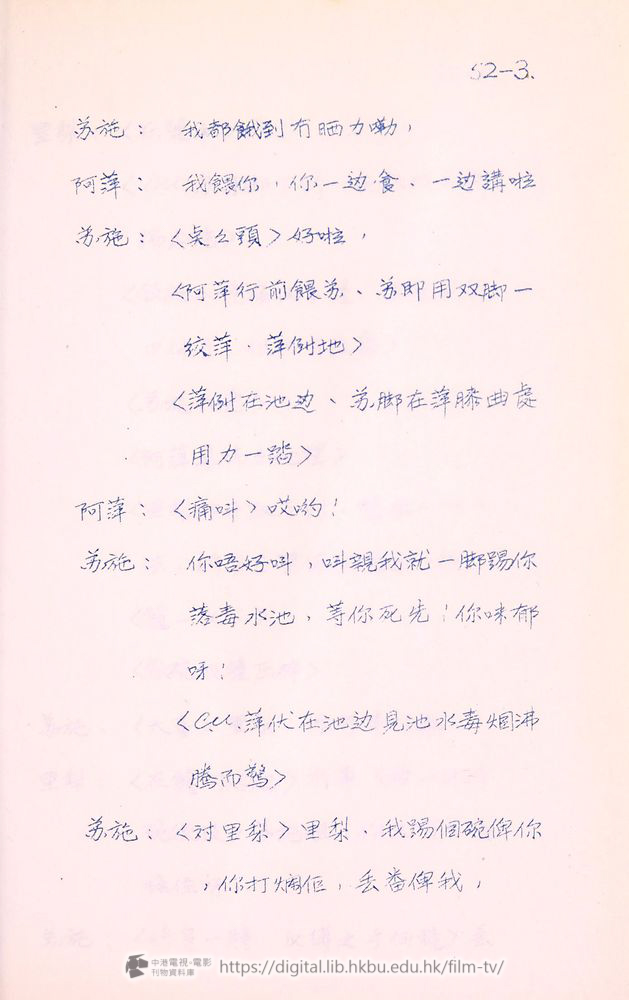 S2-3.
苏施： 我都餓到冇晒力嘞，
阿萍： 我餵你，你一边食、一边講啦
苏施：〈点么頭〉好啦，
〈阿萍行前餵苏、苏即用双脚一
绞萍．萍倒地〉
〈萍倒在池边、苏脚在萍膝曲處
用力一踏〉
阿萍：〈痛叫〉哎喲！
苏施： 你唔好叫，叫親我就一脚踢你
落毒水池，等你死先！你咪郁
呀！
〈C.U.萍伏在池边見池水毒烟沸
騰而驚〉
苏施：〈对里梨〉里梨、我踢個碗俾你
，你打爛佢，丢番俾我，
中港電視·電影
刊物資料庫
https://digital.lib.hkbu.edu.hk/film-tv/